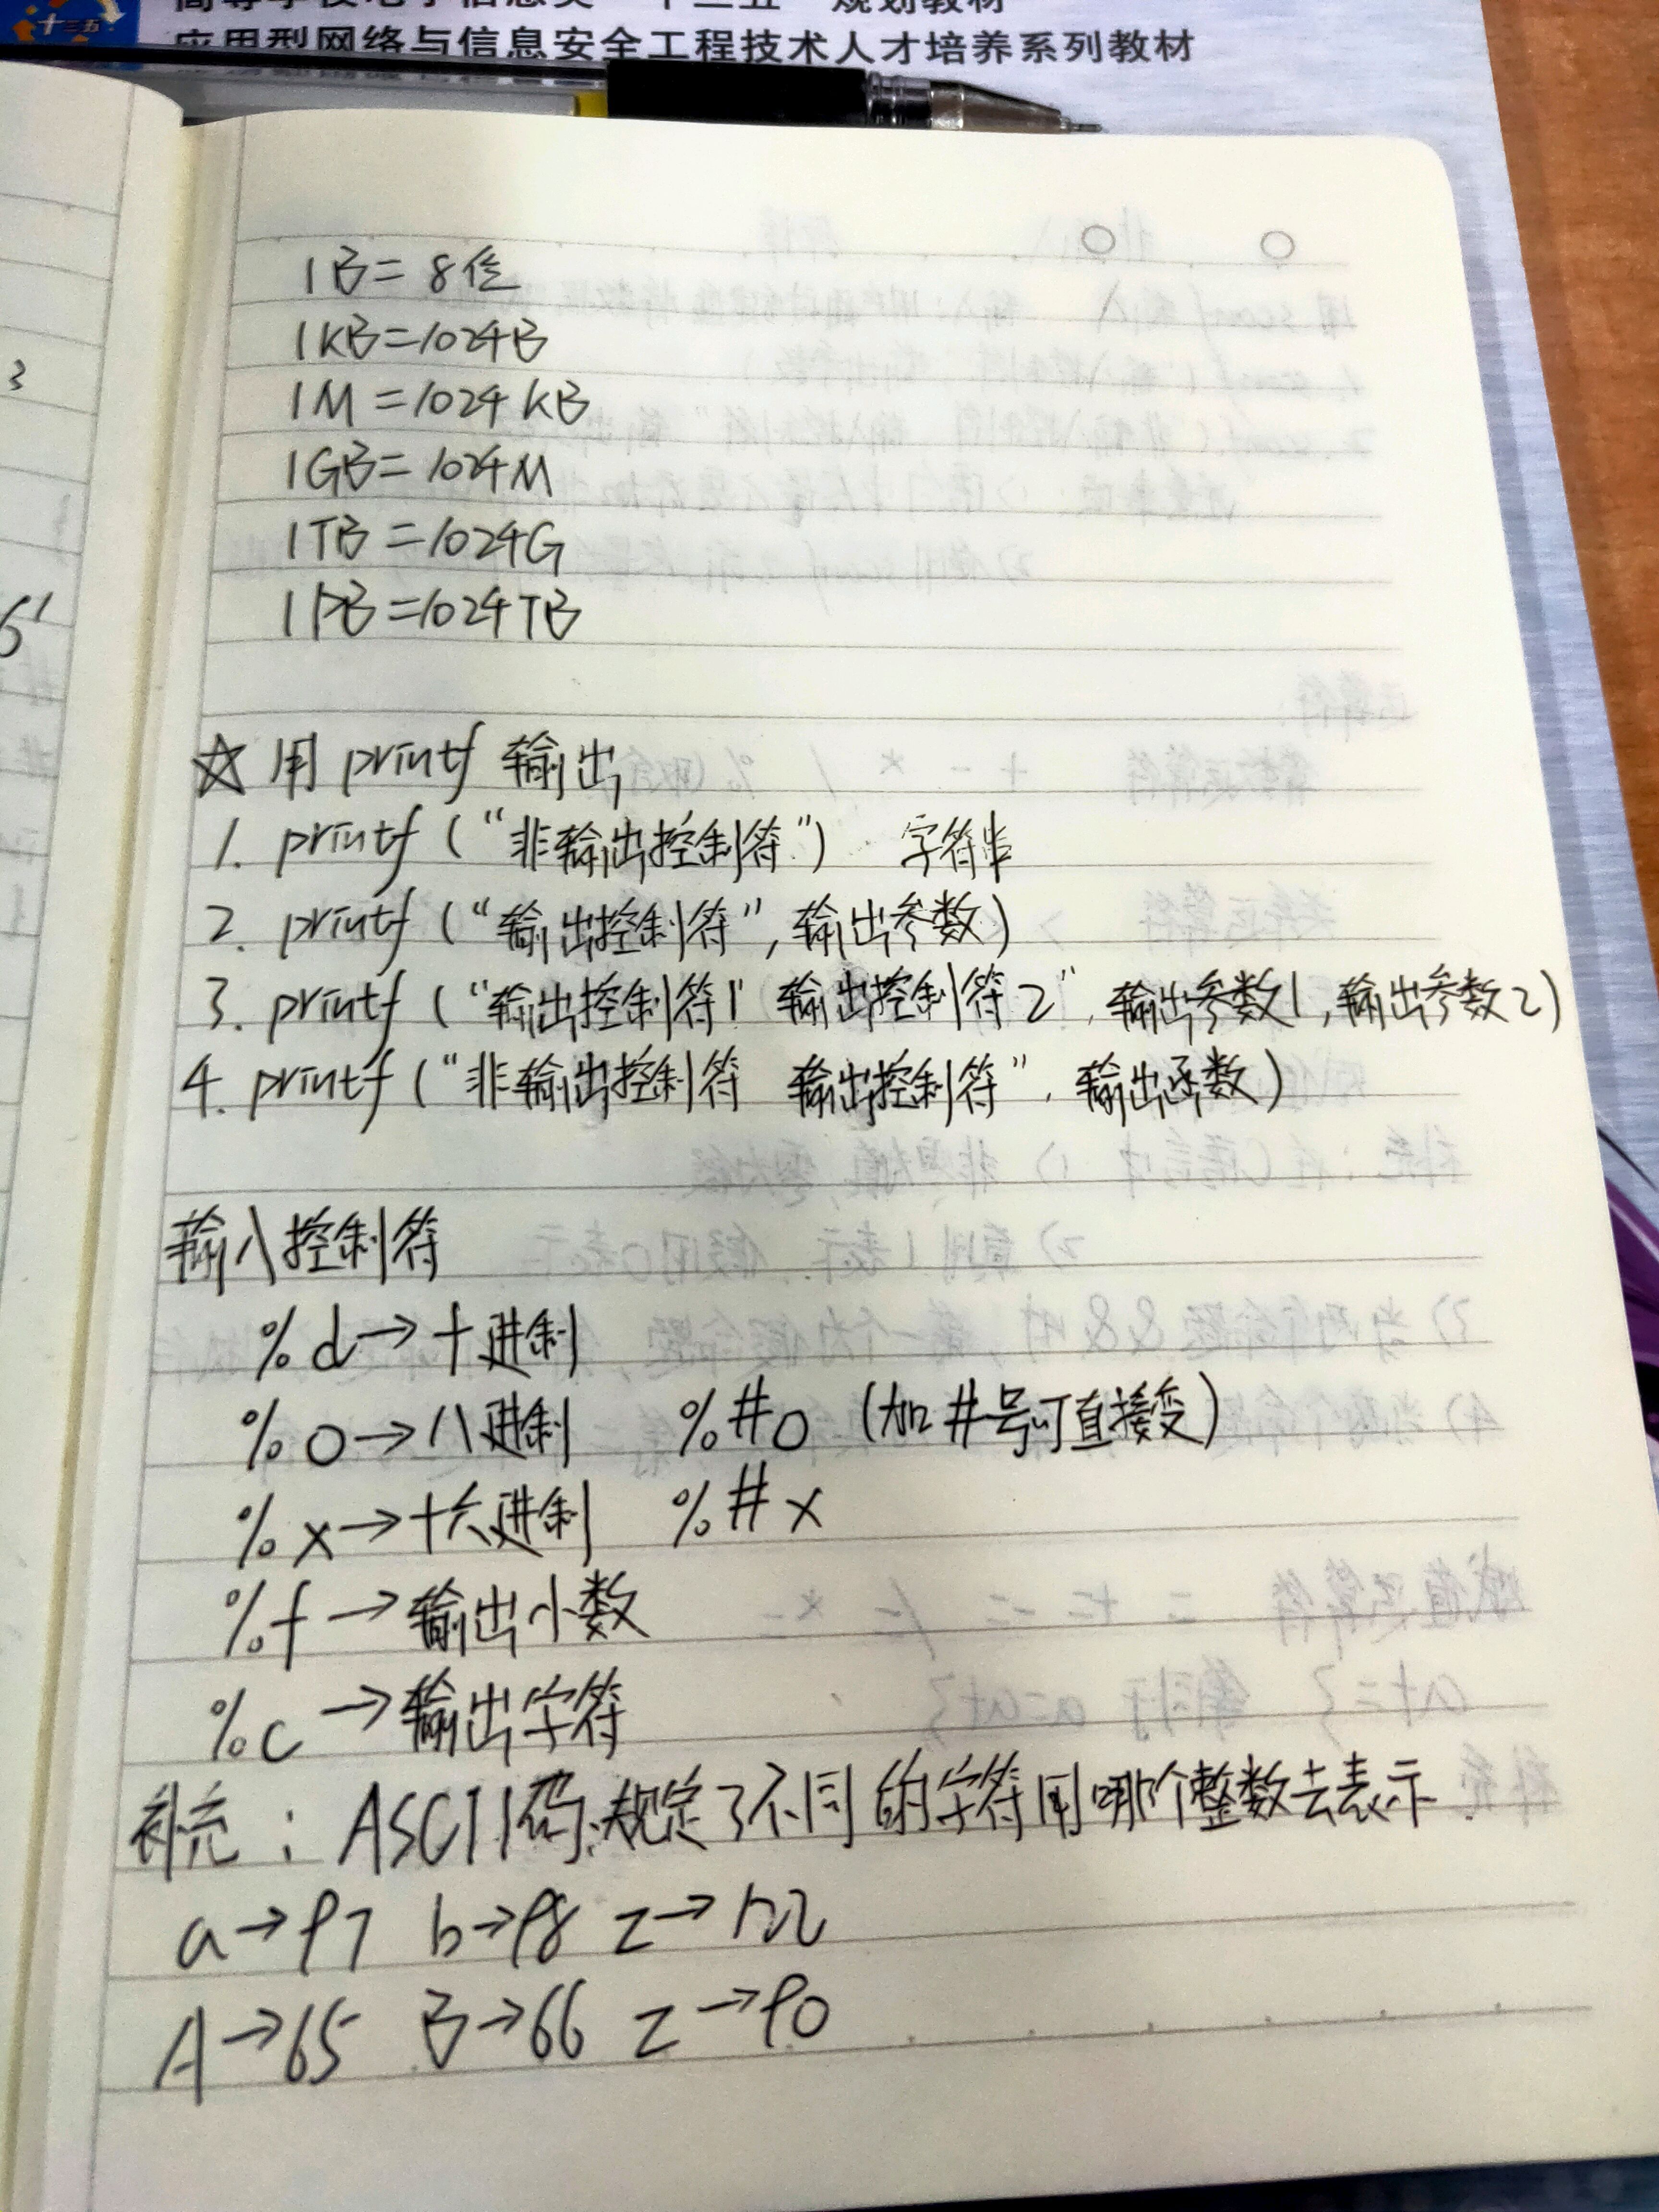 十三五
应用型网络与信息安全工程技术人才培养系列教材
1B=8位
1KB=1024B
1M=1024KB
1GB=1024M
1TB=1024G
1PB=1024TB
☆用printf输出
1. printf("非输出控制符") 字符串
2. printf("输出控制符",输出参数)
3. printf("输出控制符1 输出控制符2",输出参数1,输出参数2)
4. printf("非输出控制符 输出控制符",输出函数)
输入控制符
%d→十进制
%o→八进制 %#o (加#号可直接变)
%x→十六进制 %#x
%f→输出小数
%c→输出字符
补充:ASCII码:规定了不同的字符用哪个整数去表示.
a→97 b→98 z→122
A→65 B→66 z→90